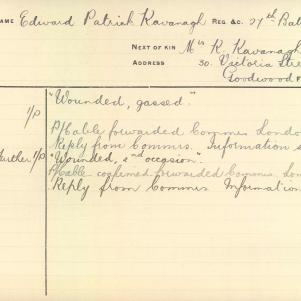 NAME Edward Patrick Kavanagh REG &c. 27th Bat
NEXT OF KIN Mrs K. Kavanagh
ADDRESS 30. Victoria Stre
Goodwood
I/P "Wounded, gassed."
P/Cable forwarded Commis London
Reply from Commis. Information s
further I/P "Wounded, 2nd occasion".
P/Cable confirmed forwarded Commis. Lon
Reply from Commis Information